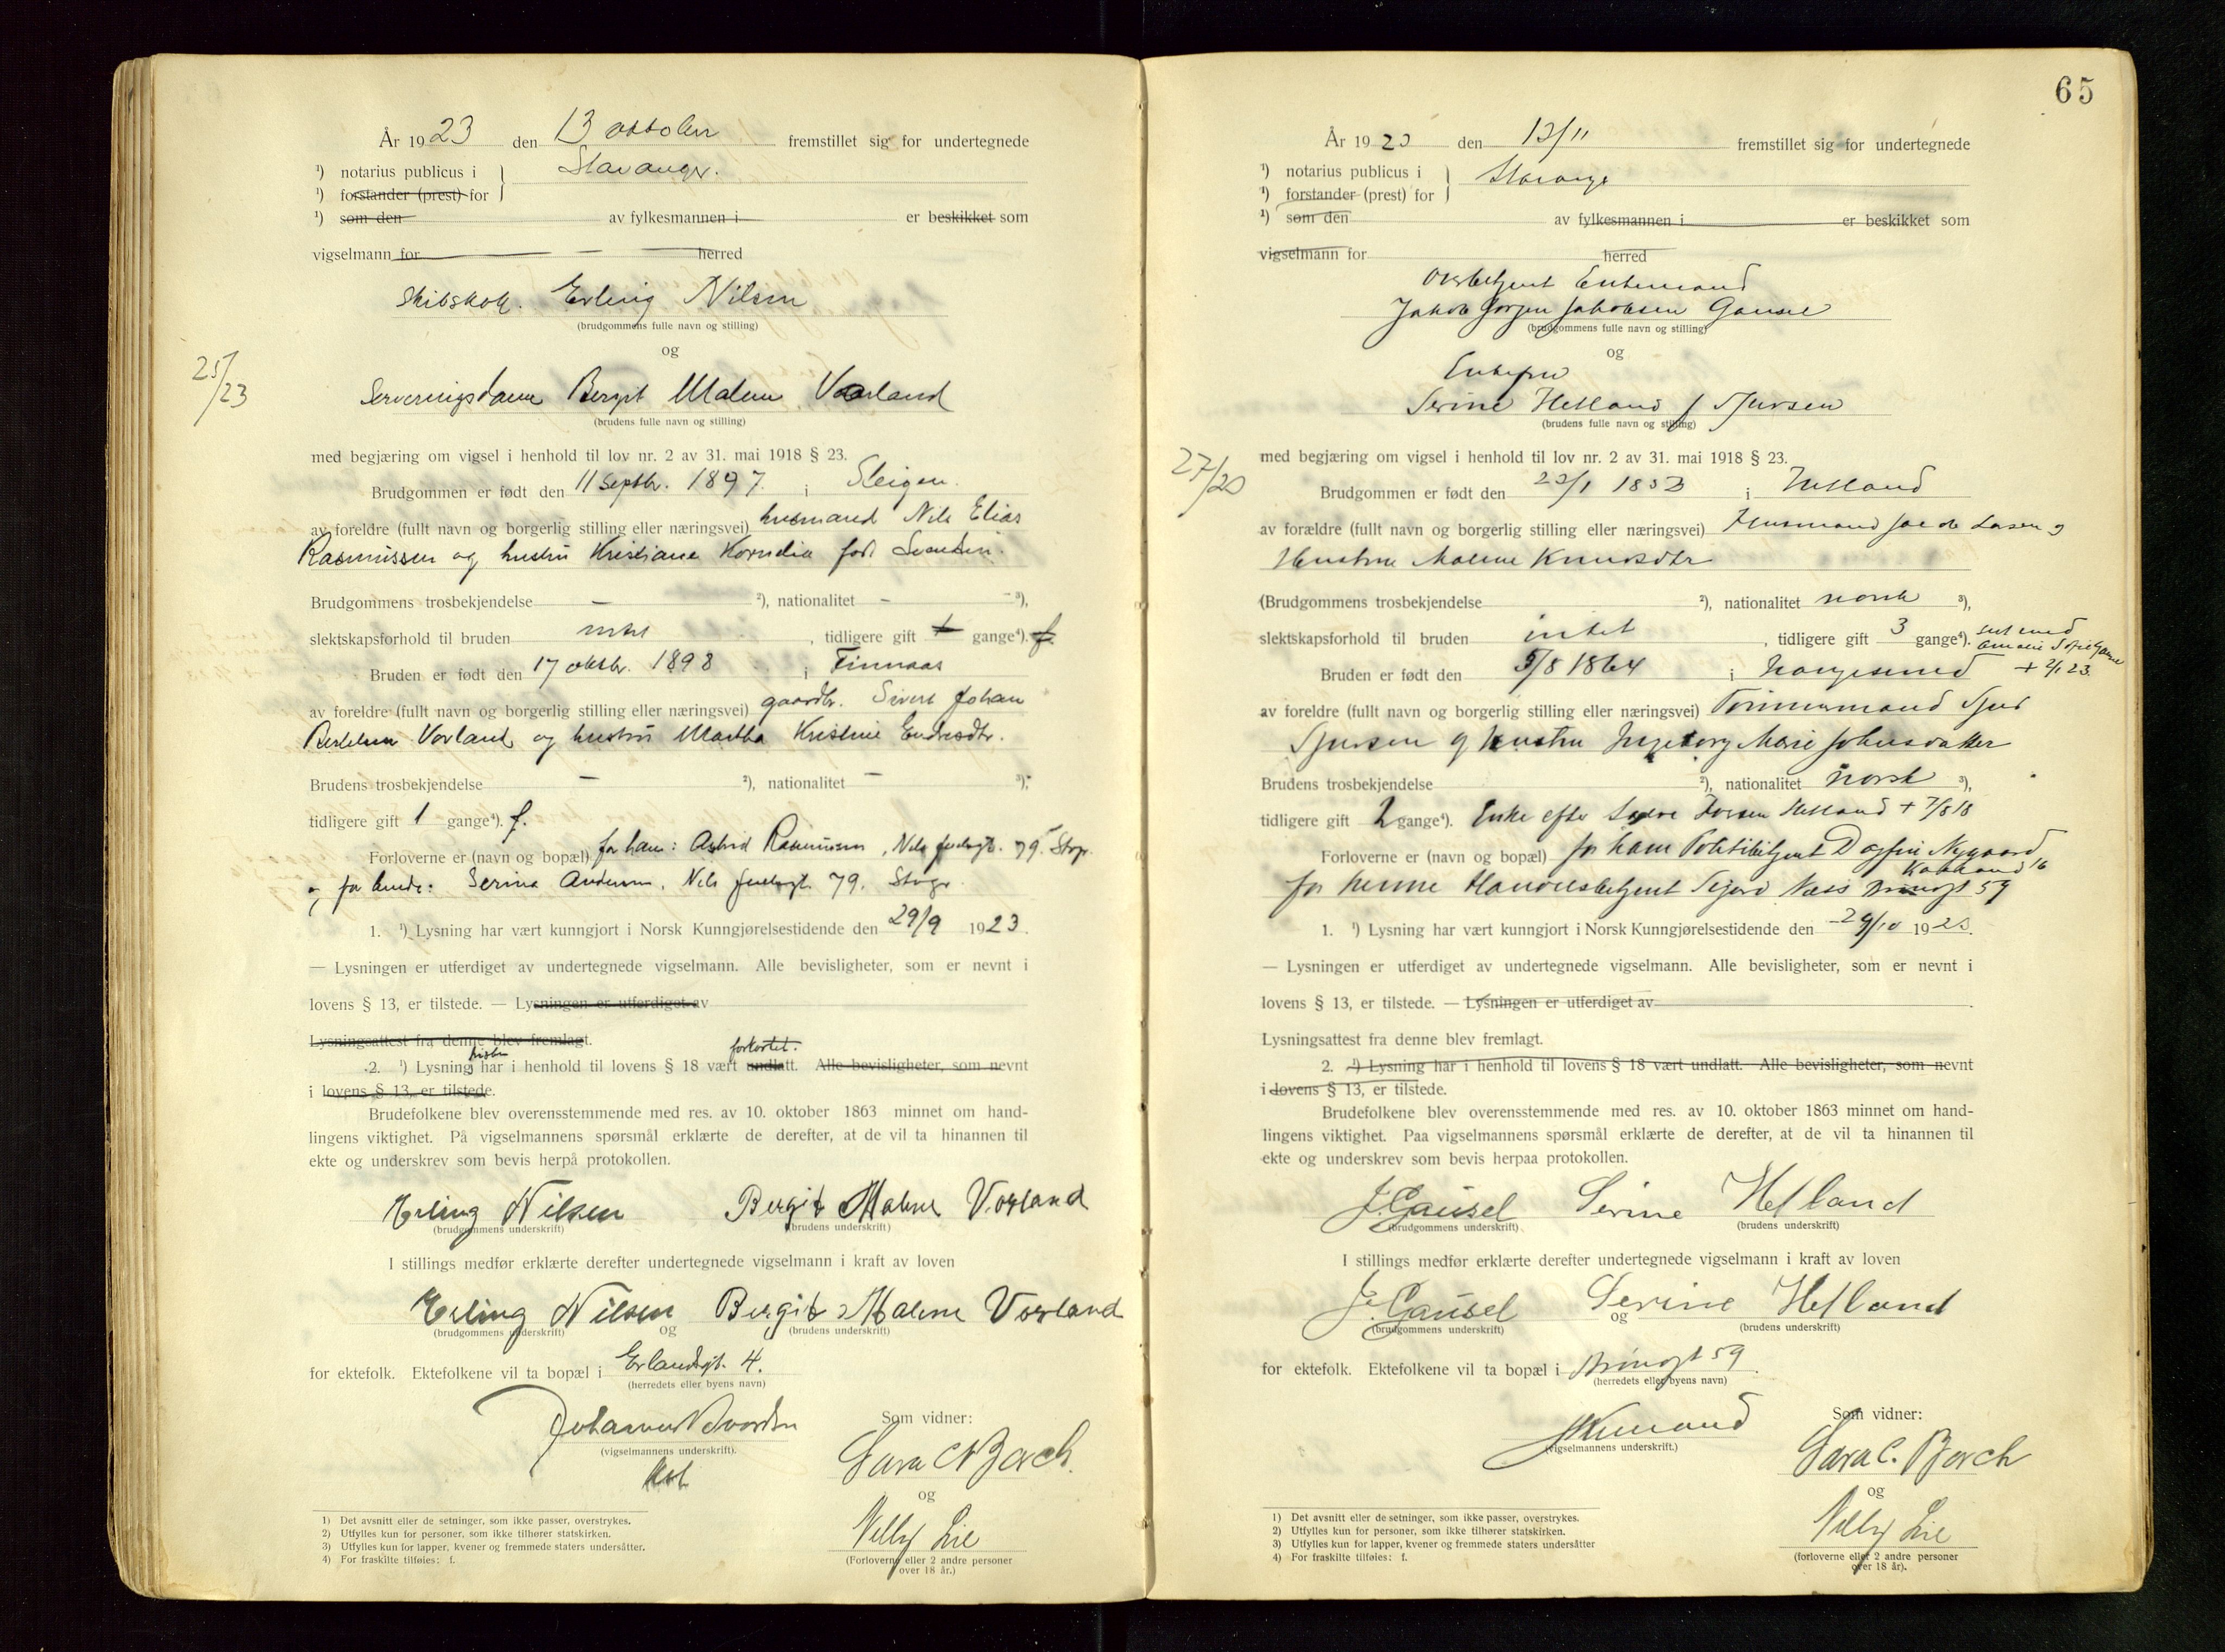 År 1923 den 13 oktober fremstillet sig for undertegnede
¹) notarius publicus i Stavanger.
¹) forstander (prest) for
¹) som den av fylkesmannen i er beskikket som
vigselmann for herred
Skibskok. Erling Nilsen
(brudgommens fulle navn og stilling)
og
25/23
Serveringsdame Bergit Malene Vorland
(brudens fulle navn og stilling)
med begjæring om vigsel i henhold til lov nr. 2 av 31. mai 1918 § 23.
Brudgommen er født den 11 Septbr. 1897. i Steigen.
av foreldre (fullt navn og borgerlig stilling eller næringsvei) husmand Nils Elias
Rasmussen og hustru Kristiane Kornelia født
Brudgommens trosbekjendelse — ²), nationalitet — ³),
slektskapsforhold til bruden intet, tidligere gift gange⁴). f.
Bruden er født den 17 oktbr. 1898 i Finnaas
av foreldre (fullt navn og borgerlig stilling eller næringsvei) gaardbr. Sivert Johan
Vorland og hustru Martha Kristine Endresdtr.
Brudens trosbekjendelse — ²), nationalitet — ³);
tidligere gift 1 gange⁴). f.
Forloverne er (navn og bopæl) for ham: Astrid Rasmussen, Nils 79. Stvgr.
og for bruden: Serina Andersen, Nils 79. Stvgr.
1. ¹) Lysning har vært kunngjort i Norsk Kunngjørelsestidende den 29/9 1923.
— Lysningen er utferdiget av undertegnede vigselmann. Alle bevisligheter, som er nevnt i
lovens § 13, er tilstede. — Lysningen er utferdiget av
Lysningsattest fra denne blev fremlagt.
forkortet.
2. ¹) Lysning har i henhold til lovens § 18 vært undlatt. Alle bevisligheter, som nevnt
i lovens § 13, er tilstede.
Brudefolkene blev overensstemmende med res. av 10. oktober 1863 minnet om hand-
lingens viktighet. På vigselmannens spørsmål erklærte de derefter, at de vil ta hinannen til
ekte og underskrev som bevis herpå protokollen.
Erling Nilsen Bergit Malene Vorland
(brudgommens underskrift) (brudens underskrift)
I stillings medfør erklærte derefter undertegnede vigselmann i kraft av loven
Erling Nilsen og Bergit Malene Vorland
(brudgommens underskrift) (brudens underskrift)
for ektefolk. Ektefolkene vil ta bopæl i Erlandsgt. 4.
(herredets eller byens navn)
Som vidner:
(vigselmannens underskrift).
Sara C Borch.
og
Nelly Lie
(Forloverne eller 2 andre personer
over 18 år.)
1) Det avsnitt eller de setninger, som ikke passer, overstrykes.
2) Utfylles kun for personer, som ikke tilhører statskirken.
3) Utfylles kun for lapper, kvener og fremmede staters undersåtter.
4) For fraskilte tilføies: f.
65
År 1923 den 13/11 fremstillet sig for undertegnede
¹) notarius publicus i Stavanger
¹) forstander (prest) for
¹) som den av fylkesmannen i er beskikket som
vigselmann for herred
Enkemand
Jakob Jørgen Jakobsen Gausel
(brudgommens fulle navn og stilling)
og
Enkefru
Serine Helland f Sjursen
(brudens fulle navn og stilling)
27/23
med begjæring om vigsel i henhold til lov nr. 2 av 31. mai 1918 § 23.
Brudgommen er født den 23/1 1853 i Hetland
av forældre (fullt navn og borgerlig stilling eller næringsvei) Husmand Jacob Larsen og
Hustru Malene Knudsdtr
(Brudgommens trosbekjendelse ²), nationalitet norsk ³),
slektskapsforhold til bruden intet, tidligere gift 3 gange⁴). sist med
Amalie Sofie Gausel
+ 2/1 23.
Bruden er født den 5/8 1864 i Haugesund
av foreldre (fullt navn og borgerlig stilling eller næringsvei) Tømmermand Sjur
Sjursen og hustru Ingeborg Marie Johnsdatter
Brudens trosbekjendelse ²), nationalitet norsk ³),
tidligere gift 2 gange⁴). Enke efter Helland + 7/8 18
Forloverne er (navn og bopæl) for ham Politibetjent Dagfin Nygaard
16
for henne Handelsbetjent Næss 59
1. ¹) Lysning har vært kunngjort i Norsk Kunngjørelsestidende den 29/10 1923.
— Lysningen er utferdiget av undertegnede vigselmann. Alle bevisligheter, som er nevnt i
lovens § 13, er tilstede. — Lysningen er utferdiget av
Lysningsattest fra denne blev fremlagt.
2. ¹) Lysning har i henhold til lovens § 18 vært undlatt. Alle bevisligheter, som nevnt
i lovens § 13, er tilstede.
Brudefolkene blev overensstemmende med res. av 10. oktober 1863 minnet om hand-
lingens viktighet. Paa vigselmannens spørsmål erklærte de derefter, at de vil ta hinannen til
ekte og underskrev som bevis herpaa protokollen.
J. Gausel Serine Helland
(brudgommens underskrift) (brudens underskrift)
I stillings medfør erklærte derefter undertegnede vigselmann i kraft av loven
J. Gausel og Serine Helland
(brudgommens underskrift) (brudens underskrift)
for ektefolk. Ektefolkene vil ta bopæl i 59
(herredets eller byens navn)
Som vidner:
(vigselmannens underskrift.)
Sara C. Borch
og
Nelly Lie
(forloverne eller 2 andre personer
over 18 år).
1) Det avsnitt eller de setninger, som ikke passer, overstrykes.
2) Utfylles kun for personer, som ikke tilhører statskirken.
3) Utfylles kun for lapper, kvener og fremmede staters undersåtter
4) For fraskilte tilføies: f.